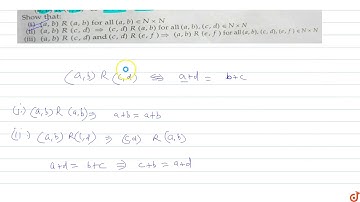 Show that:
(i) (a, b) R (a, b) for all (a, b) ∈ N × N
(ii) (a, b) R (c, d) ⇒ (c, d) R (a, b) for all (a, b), (c, d) ∈ N × N
(iii) (a, b) R (c, d) and (c, d) R (e, f) ⇒ (a, b) R (e, f) for all (a, b), (c, d), (e, f) ∈ N × N
(a,b) R (c,d) ⇔ a+d = b+c
(i.) (a,b) R (a,b) ⇒ a+b = a+b
(ii) (a,b) R (c,d) ⇒ (c,d) R (a,b)
a+d = b+c ⇒ c+b = a+d